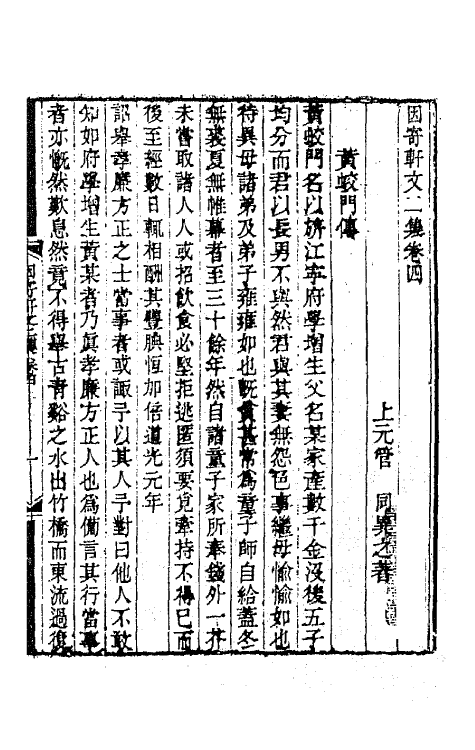 因寄軒文二集卷四
上元管 同異之著
黃蛟門傳
黃蛟門名以旂江寧府學增生父名某家產數千金沒後五子
均分而君以長男不與然君與其妻無怨色事繼母愉愉如也
待異母諸弟及弟子雍雍如也旣貧甚常爲童子師自給蓋冬
無裘夏無帷幕者至三十餘年然自諸童子家所奉錢外一芥
未嘗取諸人人或招飲食必堅拒逃匿須要覓牽持不得已而
後至經數日輒相酬其豐腆恒加倍道光元年
詔舉孝廉方正之士當事者或諏予以其人予對曰他人不敢
知如府學增生黃某者乃眞孝廉方正人也爲備言其行當事
者亦慨然歎息然竟不得舉古靑谿之水出竹橋而東流過復